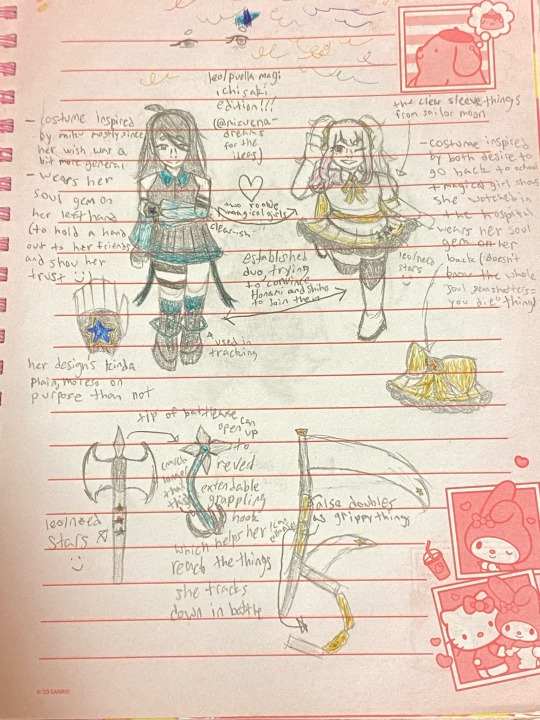 leo/puella magi
ichisaki
edition!!!
(@mizuena-
dreams
for the
ideas)
- costume inspired
by miku mostly since
her wish was a
bit more general
- wears her
soul gem on
her left hand
(to hold a hand
out to her friends
and show her
trust :)
her design's kinda
plain, moreso on
purpose than not
two rookie
magical girls
clearish
established
duo, trying
to convince
Honami and Shiho
to join them
used in
tracking
the clear sleeve things
from sailor moon
- costume inspired
by both desire to
go back to school
+ magical girl shows
she watched in
the hospital
wears her soul
gem on her
back (doesn't
know the whole
"soul gem shatters=
you die" thing)
leo/need
stars
tip of battleaxe
can
open up
to
reveal
extendable
grappling
hook
which helps her
reach the things
she tracks
down in battle
(much
longer
than
this)
leo/need
stars
:)
also doubles
as grippy things
©'23 SANRIO